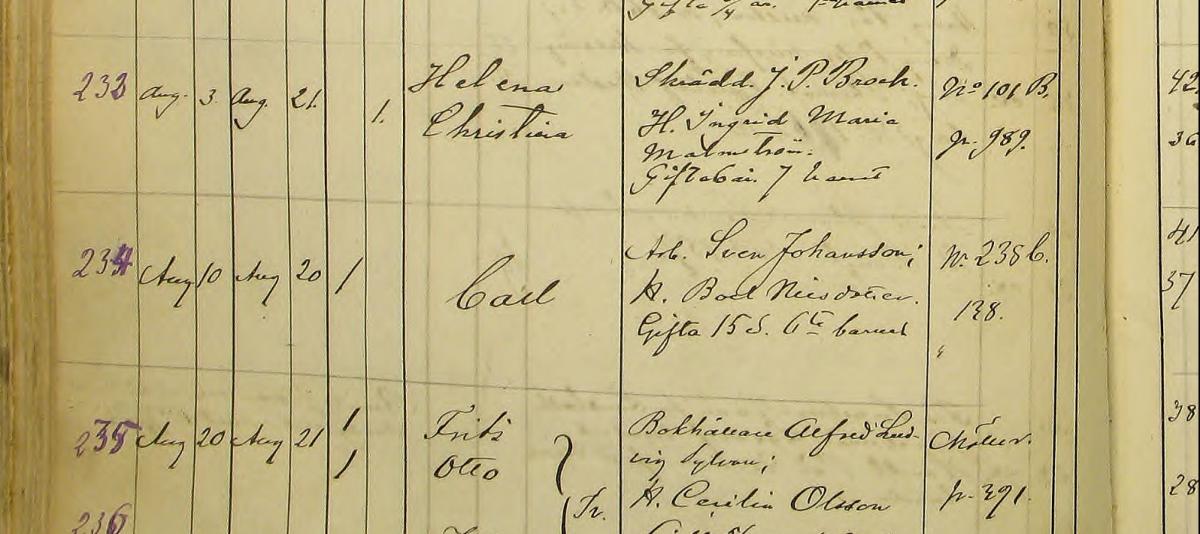 232 Aug. 3. Aug. 21. 1. Helena Skrädd. J. P. Brock. No 101 B. 42
Christina H. Ingrid Maria p. 989. 36
Malmström.
Gifta 6 år. 7 barnet
234 Aug 10 Aug 20 1 Carl Arb. Sven Johansson; No. 238 C. 41
H. Boel Nilsdotter. 138. 37
Gifta 15 å. 6te barnet "
235 Aug 20 Aug 21 1 Fritz Bokhållare Alfred Lud- Möllev. 38
1 Otto vig Sylvan;
Tv. H. Cecilia Olsson p. 391. 28
236